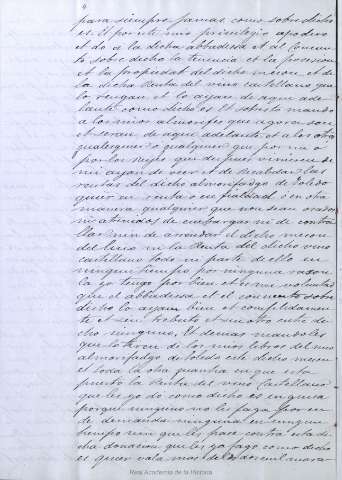 para siempre jamas, como sobredicho
es. Et por este mio privilegio apodero
et do a la dicha abbadessa et al Conven-
to sobre dicho la tenencia et la possesion
et la propiedat del dicho meson et de
la dicha Renta del vino castellano que
lo tengan et lo ayan de aqui ade-
lante como dicho es. Et sobresto mando
a los mios almoxrifes que agora son
et seran de aqui adelante et a los otros
qualesquier o qualquier que por mi o
por los Reyes que despues vinieren de
mi ayan de veer et de Recabdar las
rentas del dicho almoxrifadgo de Toledo
quier en renta o en fialdad o en otra
manera qualquier que non sean osados
ni atrevidos de embargar ni de contra-
llar nin de arrendar el dicho meson
del Lino ni la Renta del dicho vino
castellano todo ni parte de ello en
ningun tiempo por ninguna razon
Ca yo tengo por bien et es mi voluntad
que el abbadessa et el convento sobre
dicho lo ayan bien et complidamen-
te et sin Embargo
dicho ninguno. Et demas mandoles
que lo tiren de los mios libros del mio
almoxrifadgo de Toledo este dicho meson
et toda la otra quantia en que esta
puesta la Renta del vino Castellano
que les yo do como dicho es en guisa
porque ninguno no les faga por en-
de demanda ninguna en ningun
tiempo nin que les pase contra esta di-
cha donacion que les yo fago como dicho
es quier vala mas de los dos mil marave-
Real Academia de la Historia